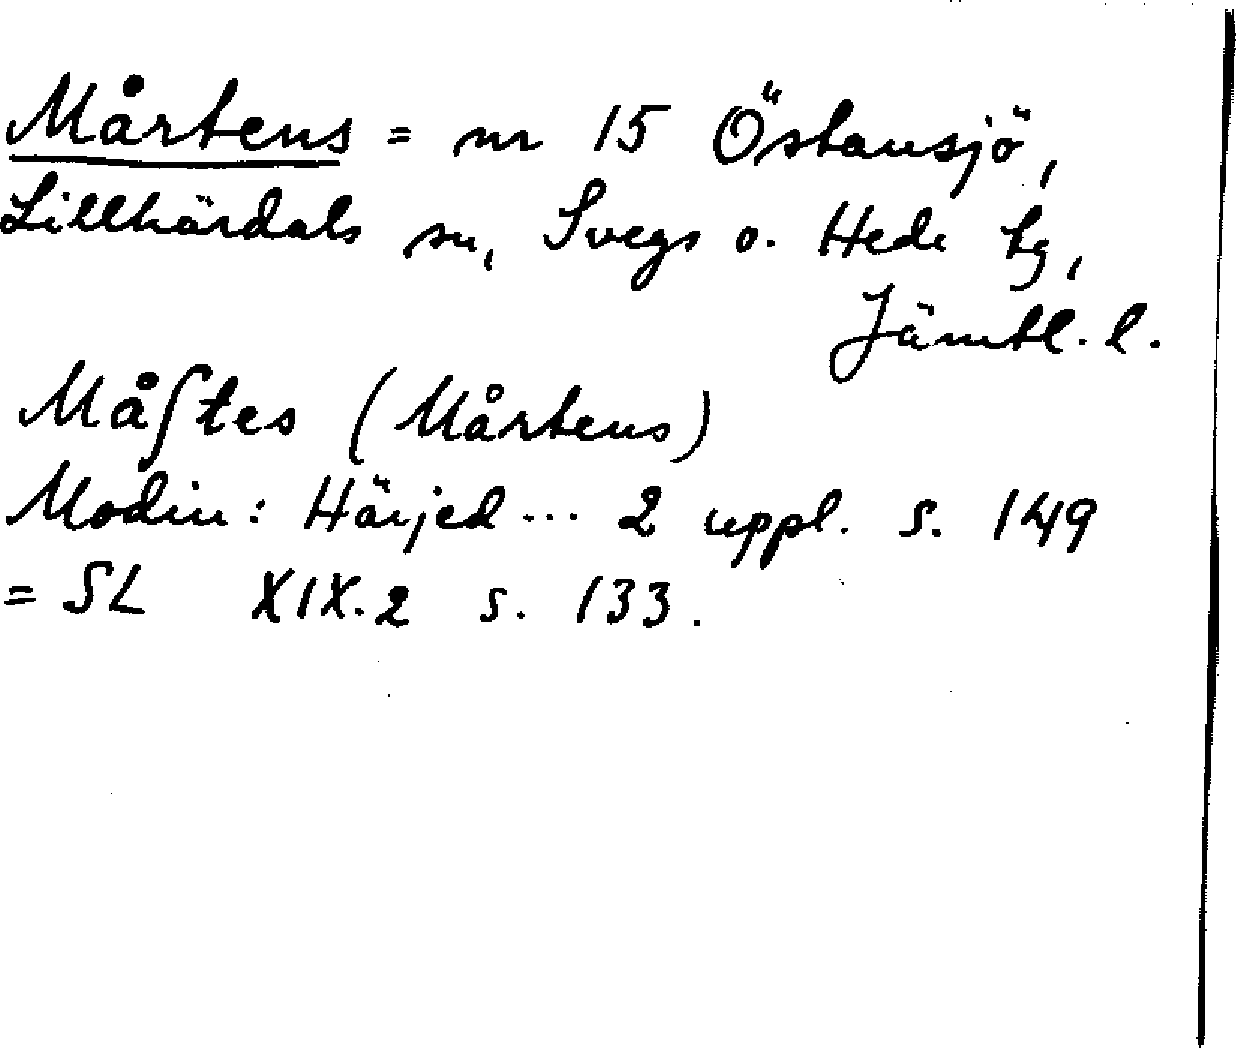 Mårtens = nr 15 Östansjö,
Lillhärdals sn, Svegs o. Hede tg,
Jämtl. l.
Måʃtes (Mårtens)
Modin: Härjed... 2 uppl. s. 149
= SL XIX.2 s. 133.